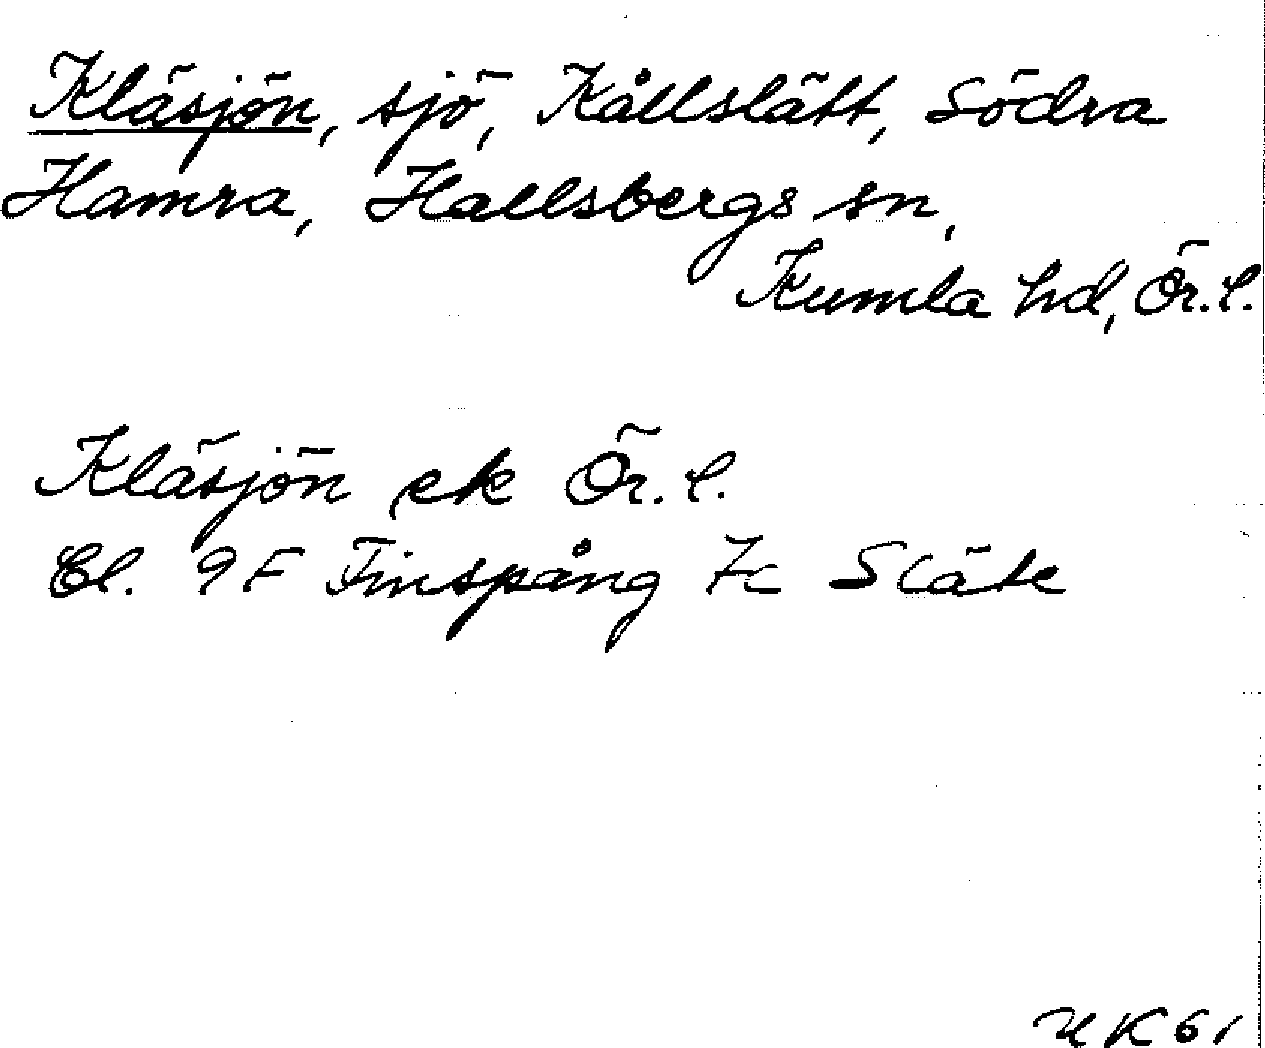 Kläsjön, sjö, Kållslätt, Södra
Hamra, Hallsbergs sn,
Kumla hd, Ör. l.
Kläsjön ek Ör. l.
Bl. 9F Finspång 7c Släte
UK 61